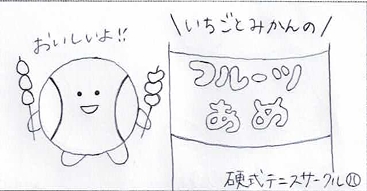 おいしいよ!!
\いちごとみかんの/
フルーツ
あめ
硬式テニスサークル